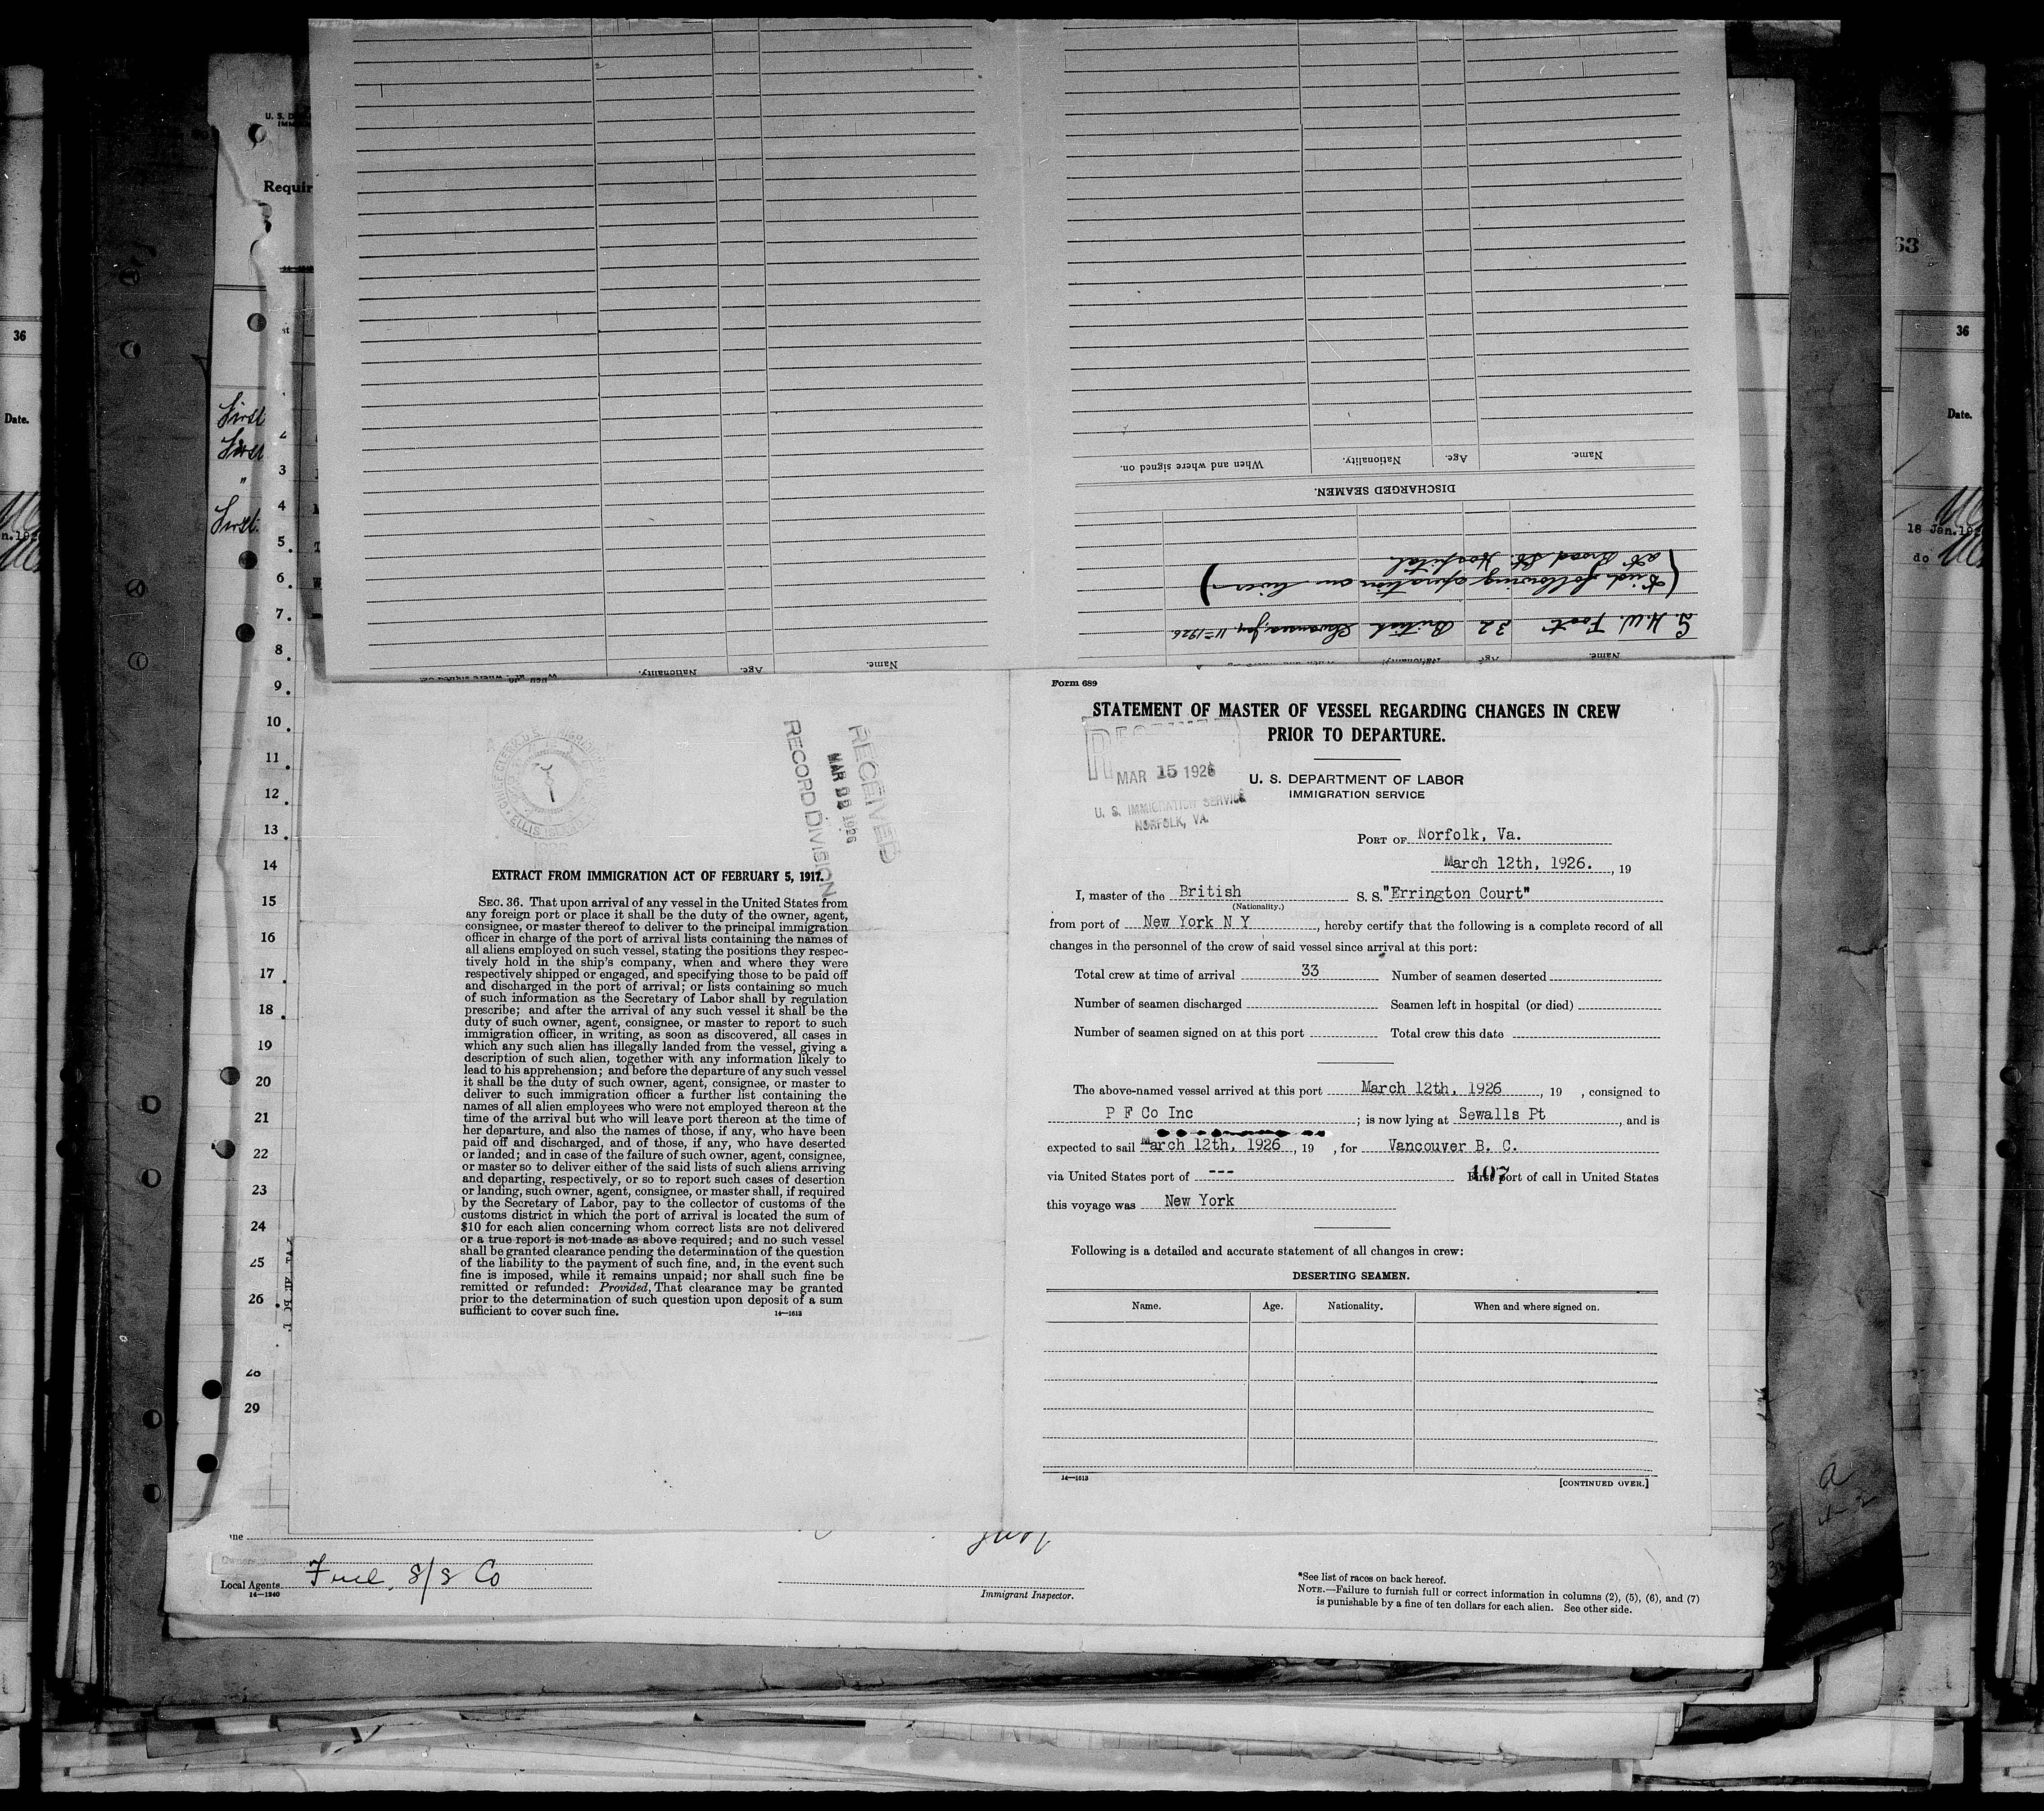 U. S. D
IMM
Requir
63
36
36
Date.
Date.
18 Jan.192
do
n.192
First
First
"
First.
st
2
3
4
5
6
7
8
9
10
11
12
13
14
15
16
17
18
19
20
21
22
23
24
25
26
28
29
Name. Age. Nationality. When and where signed on.
DISCHARGED SEAMEN.
G. H. W. Foot 32 British Swansea, Jay. 11=1926
(Died following operation on liver)
at Broad St. Hospital
Name. Age. Nationality.
Name. Age. Nationality.
RECEIVED
MAR 1926
RECORD DIVISION
CHIEF CLERK, U.S. IMMIGRATION
ELLIS ISLAND
1926
EXTRACT FROM IMMIGRATION ACT OF FEBRUARY 5, 1917.
SEC. 36. That upon arrival of any vessel in the United States from
any foreign port or place it shall be the duty of the owner, agent,
consignee, or master thereof to deliver to the principal immigration
officer in charge of the port of arrival lists containing the names of
all aliens employed on such vessel, stating the positions they respec-
tively hold in the ship's company, when and where they were
respectively shipped or engaged, and specifying those to be paid off
and discharged in the port of arrival; or lists containing so much
of such information as the Secretary of Labor shall by regulation
prescribe; and after the arrival of any such vessel it shall be the
duty of such owner, agent, consignee, or master to report to such
immigration officer, in writing, as soon as discovered, all cases in
which any such alien has illegally landed from the vessel, giving a
description of such alien, together with any information likely to
lead to his apprehension; and before the departure of any such vessel
it shall be the duty of such owner, agent, consignee, or master to
deliver to such immigration officer a further list containing the
names of all alien employees who were not employed thereon at the
time of the arrival but who will leave port thereon at the time of
her departure, and also the names of those, if any, who have been
paid off and discharged, and of those, if any, who have deserted
or landed; and in case of the failure of such owner, agent, consignee,
or master so to deliver either of the said lists of such aliens arriving
and departing, respectively, or so to report such cases of desertion
or landing, such owner, agent, consignee, or master shall, if required
by the Secretary of Labor, pay to the collector of customs of the
customs district in which the port of arrival is located the sum of
$10 for each alien concerning whom correct lists are not delivered
or a true report is not made as above required; and no such vessel
shall be granted clearance pending the determination of the question
of the liability to the payment of such fine, and, in the event such
fine is imposed, while it remains unpaid; nor shall such fine be
remitted or refunded: Provided, That clearance may be granted
prior to the determination of such question upon deposit of a sum
sufficient to cover such fine. 14—1613
Form 689
STATEMENT OF MASTER OF VESSEL REGARDING CHANGES IN CREW
PRIOR TO DEPARTURE.
RECEIVED
MAR 15 1926
U. S. IMMIGRATION SERVICE
NORFOLK, VA.
U. S. DEPARTMENT OF LABOR
IMMIGRATION SERVICE
PORT OF Norfolk, Va.
March 12th, 1926. , 19
I, master of the British S. S. "Errington Court"
(Nationality.)
from port of New York N Y , hereby certify that the following is a complete record of all
changes in the personnel of the crew of said vessel since arrival at this port:
Total crew at time of arrival 33 Number of seamen deserted
Number of seamen discharged Seamen left in hospital (or died)
Number of seamen signed on at this port Total crew this date
The above-named vessel arrived at this port March 12th, 1926 , 19 , consigned to
P F Co Inc ; is now lying at Sewalls Pt , and is
expected to sail March 12th, 1926 , 19 , for Vancouver B. C.
via United States port of --- First port of call in United States
107
this voyage was New York
Following is a detailed and accurate statement of all changes in crew:
DESERTING SEAMEN.
Name. Age. Nationality. When and where signed on.
14—1613 [CONTINUED OVER.]
Owners
Local Agents Fuel, S/S Co
14—1240
Immigrant Inspector.
*See list of races on back hereof.
NOTE.—Failure to furnish full or correct information in columns (2), (5), (6), and (7)
is punishable by a fine of ten dollars for each alien. See other side.